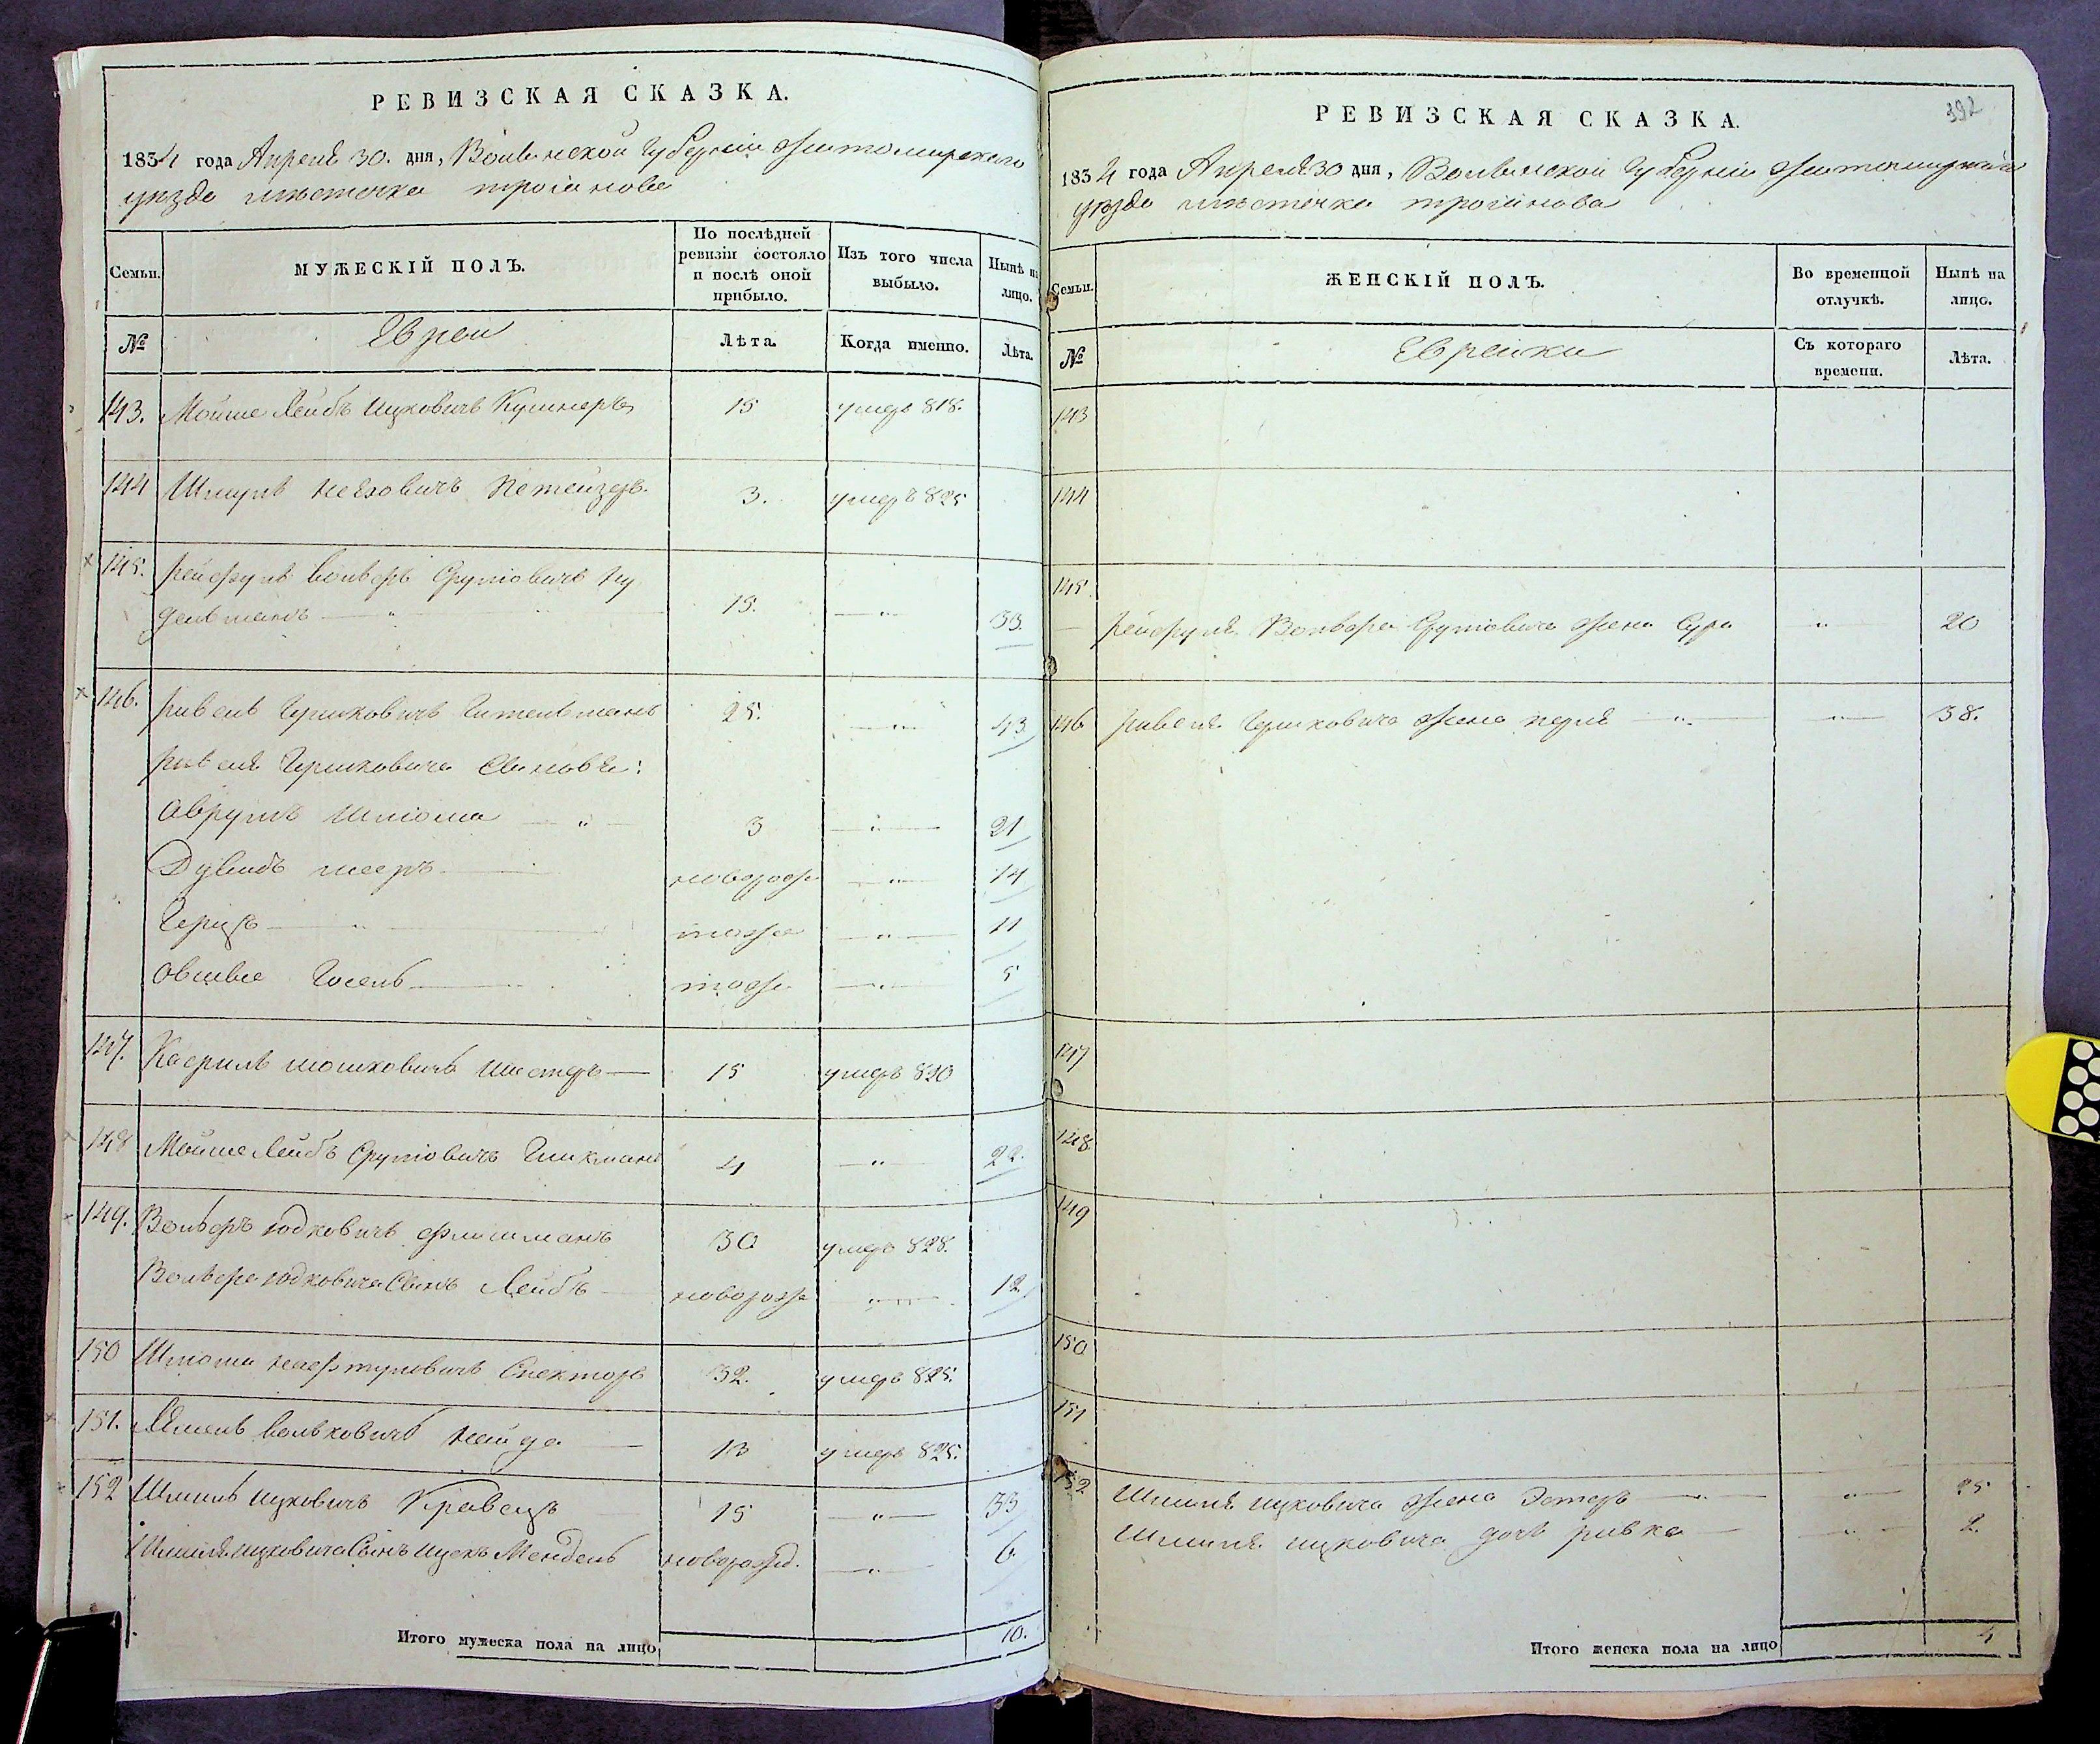 РЕВИЗСКАЯ СКАЗКА.
1834 года Апреля 30. дня, Волынской Губерніи Житомирскаго
уезда местечка троянова
Семьи.
МУЖЕСКІЙ ПОЛЪ.
По послѣдней ревизіи состояло и послѣ оной прибыло.
Изъ того числа выбыло.
Нынѣ на лицо.
№
Евреи
Лѣта.
Когда именно.
Лѣта.
143. Мойше Лейбъ Ицковичъ Кушнеръ 15 умеръ 818.
144 Шмуль 3. умеръ 825
145. Вольфъ Сруліовичъ Ну
дельманъ 15. 33.
146. Гершковичъ Гительманъ 25. 43
Гершковича Сыновья:
Аврумъ Шліома 3 21
Дувидъ мееръ новорож 14
Герцъ тоже 11
Овшіе Іосель тож 5
147. Касриль мошковичъ Шестеръ 15 умеръ 830
148 Мойше Лейбъ Сруліовичъ Гликманъ 4 22.
149. Вольфъ юдковичъ Флишманъ 30 умеръ 828.
Вольфа юдковича Сынъ Лейбъ новорож 12
150 Шліома нафтуловичъ Спекторъ 32. умеръ 825.
151. вольковичъ найда 13 умеръ 825.
152 Шмиль ицковичъ Кравецъ 15 33
Шмиля ицковича Сынъ ицекъ Мендель новорожд. 6
Итого мужеска пола на лицо 10.
392
РЕВИЗСКАЯ СКАЗКА.
1834 года Апреля 30 дня, Волынской Губерніи Житомирскаго
уезда местечка троянова
Семьи.
ЖЕНСКІЙ ПОЛЪ.
Во временной отлучкѣ.
Нынѣ на лицо.
№
Еврейки
Съ котораго времени.
Лѣта.
143
144
145
Вольфа Сруліовича жена Сура 20
146 Гершковича жена перля 38.
147
148
149
150
151
152 Шмиля ицковича жена Эстеръ 25
Шмиля ицковича дочь ривка 2.
Итого женска пола на лицо 4